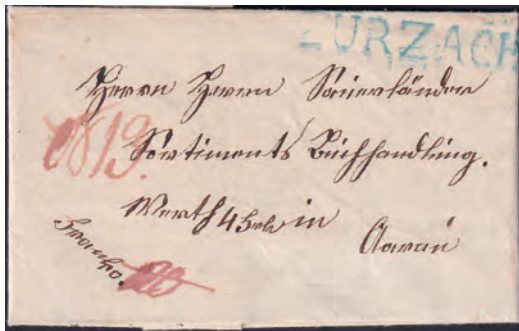 ZURZACH
Herrn Herrn Sauerländer
Sortiments Buchhandlung.
Werth 4 in
Aarau
Franko.